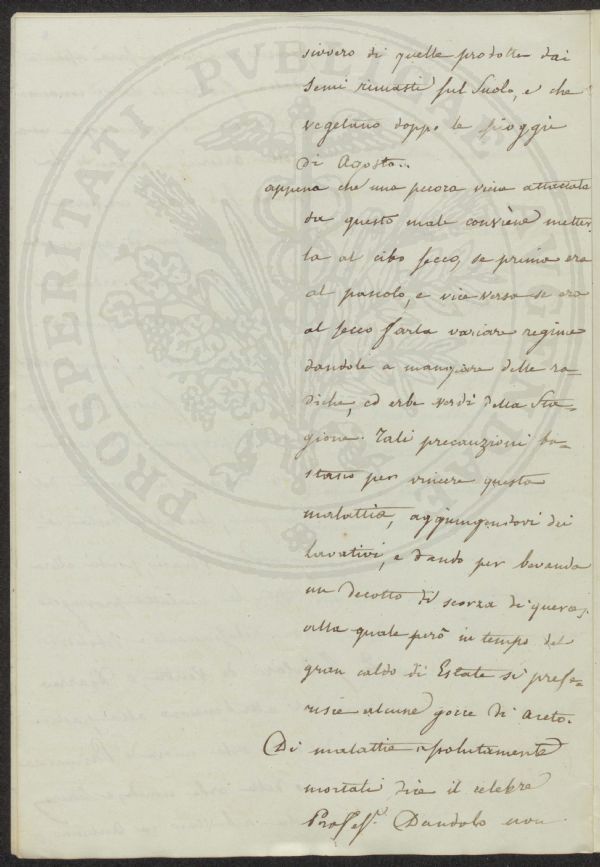 sivvero di quelle prodotte dai
semi rimasti sul Suolo, e che
vegetano doppo le pioggie
di Agosto..
appena che una pecora viene attaccata
da questo male conviene metter-
la al cibo secco, se prima era
al pascolo, e vice versa se era
al secco farla variare regime
dandole a mangiare delle ra-
diche, ed erbe verdi della Sta-
gione. Tali precauzioni ba-
stano per vincere questa
malattia, aggiungendovi dei
lavativi, e dando per bevanda
un decotto di scorza di querce,
alla quale però in tempo del
gran caldo di Estate si prefe-
risce alcune gocce di aceto.
Di malattie assolutamente
mortali dice il celebre
Profess.r Dandolo non
PROSPERITATI PVBLICAE AVGENDAE